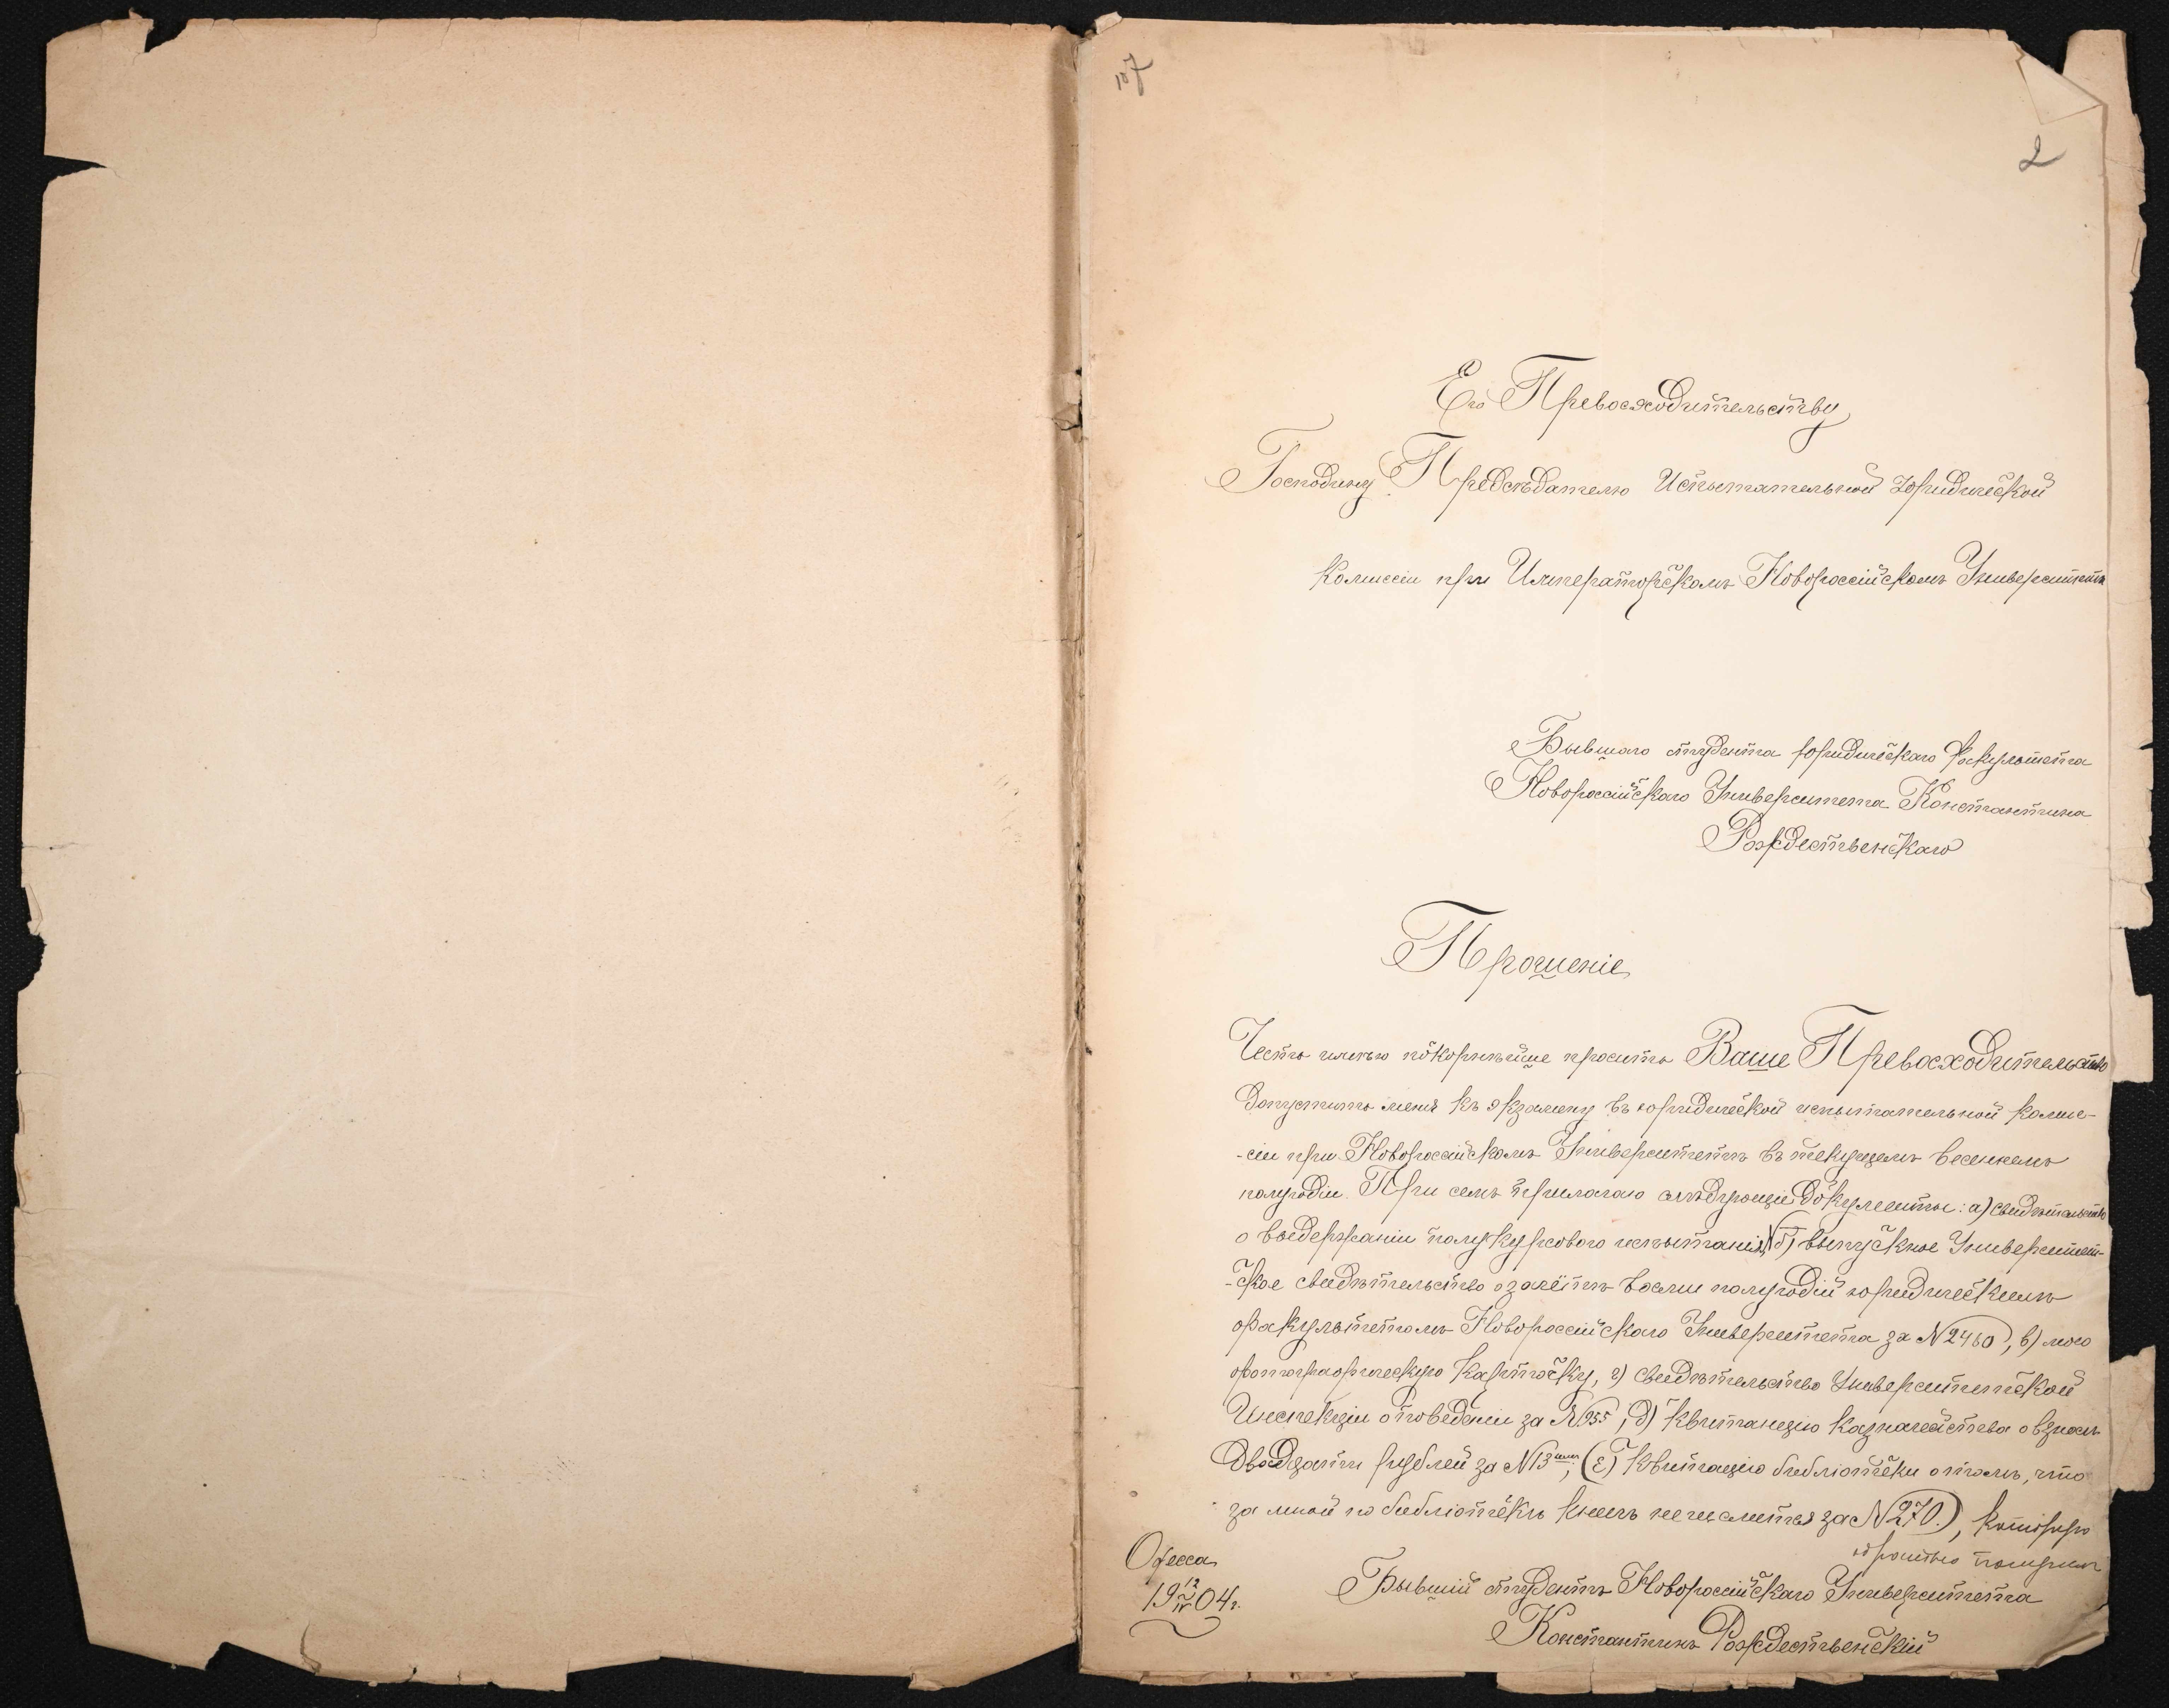 107
2
Его Превосходительству
Господину Предсѣдателю Испытательной Юридической
Комиссіи при Императорскомъ Новороссійскомъ Университетѣ
Бывшаго студента юридическаго факультета
Новороссійскаго Университета Константина
Рождественскаго
Прошеніе
Честь имѣю покорнѣйше просить Ваше Превосходительство
допустить меня къ экзамену въ юридической испытательной комис-
-сіи при Новороссійскомъ Университетѣ въ текущемъ весеннемъ
полугодіи. При семъ прилагаю слѣдующіе документы: а) свидѣтельство
о выдержаніи полукурсового испытанія, б) выпускное Университет-
-ское свидѣтельство о зачётѣ восьми полугодій юридическимъ
факультетомъ Новороссійскаго Университета за №2460, в) мою
фотографическую карточку, г) свидѣтельство Университетской
Инспекціи о поведеніи за №955, д) квитанцію казначейства о взносѣ
двадцати рублей за №13, (е) квитанцію библіотеки о томъ, что
за мной по библіотекѣ книгъ не числится за №270.),
Одесса
19 12/IV 04 г.
Бывшій студентъ Новороссійскаго Университета
Константинъ Рождественскій